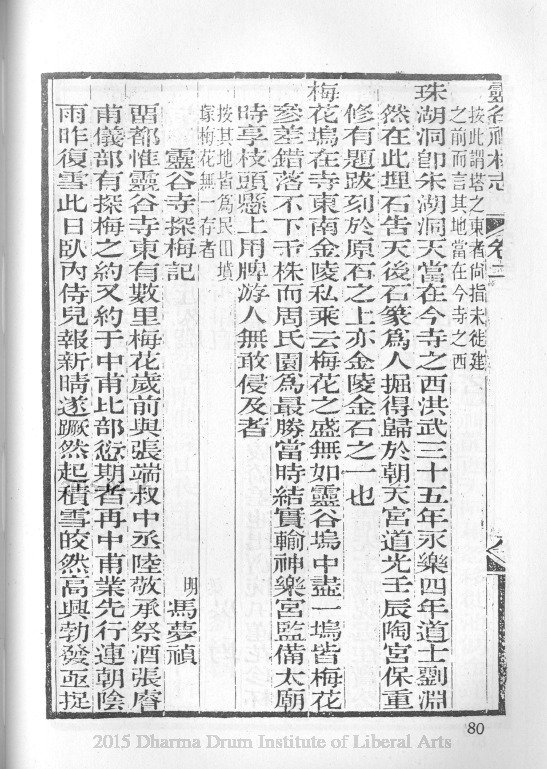 靈谷禪林志　卷二　八
按此謂塔之東者尙指未徙建
之前而言其地當在今寺之西
珠湖洞卽朱湖洞天當在今寺之西洪武三十五年永樂四年道士劉淵
然在此埋石告天後石篆爲人掘得歸於朝天宮道光壬辰陶宮保重
修有題跋刻於原石之上亦金陵金石之一也
梅花塢在寺東南金陵私乘云梅花之盛無如靈谷塢中盡一塢皆梅花
參差錯落不下千株而周氏園爲最勝當時結實輸神樂宮監備太廟
時享枝頭懸上用牌游人無敢侵及者
按其地皆爲民田墳
塚梅花無一存者
靈谷寺探梅記
明　馮夢禎
畱都惟靈谷寺東有數里梅花歲前與張端叔中丞陸敬承祭酒張睿
甫儀部有探梅之約又約于中甫比部愆期者再中甫業先行連朝陰
雨昨復雪此日臥內侍兒報新晴遂蹶然起積雪皎然高興勃發亟捉
80
2015 Dharma Drum Institute of Liberal Arts